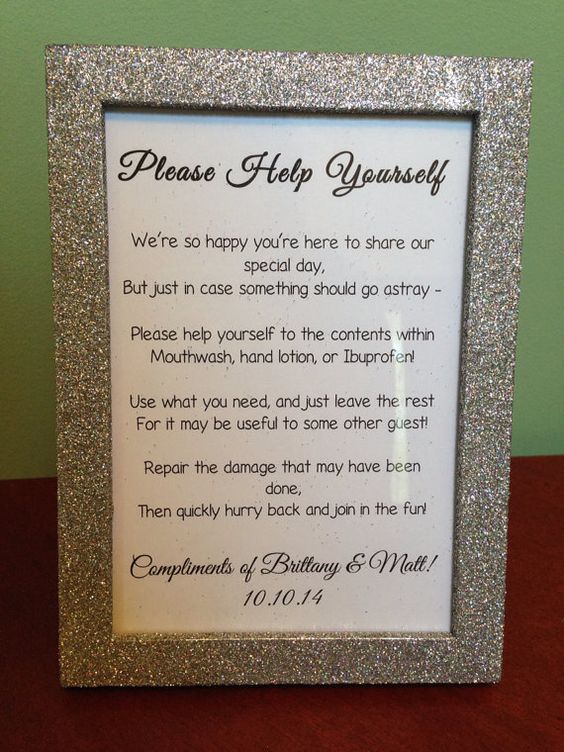 Please Help Yourself
We're so happy you're here to share our
special day,
But just in case something should go astray -
Please help yourself to the contents within
Mouthwash, hand lotion, or Ibuprofen!
Use what you need, and just leave the rest
For it may be useful to some other guest!
Repair the damage that may have been
done,
Then quickly hurry back and join in the fun!
Compliments of Brittany & Matt!
10.10.14